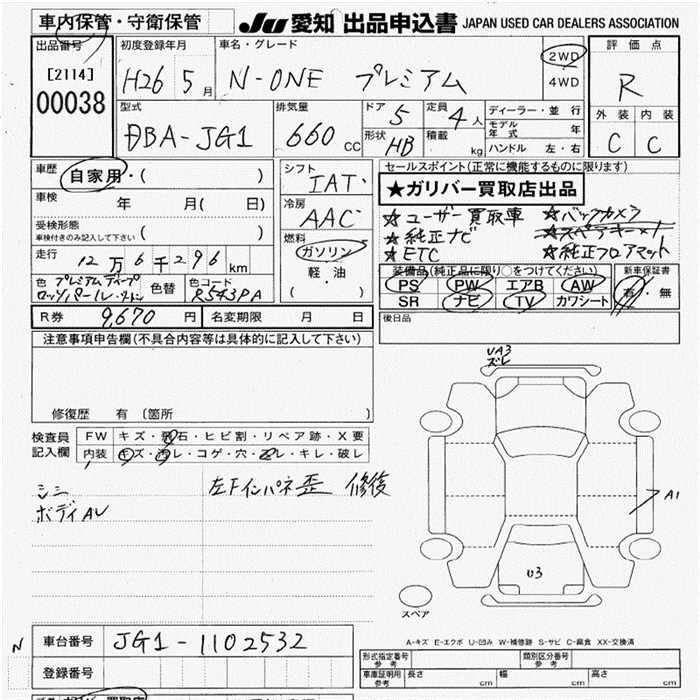 車内保管・守衛保管
JU 愛知 出品申込書 JAPAN USED CAR DEALERS ASSOCIATION
出品番号
[2114]
00038
初度登録年月
H26 5月
車名・グレード
N-ONE プレミアム
2WD
4WD
評価点
R
外装 内装
C C
型式
DBA-JG1
排気量
660 CC
ドア 5
定員 4人
形状 HB
積載 kg
ディーラー・並行
モデル年式 年
ハンドル 左・右
車歴
自家用・( )
車検 年 月( 日)
受検形態
車検付きのみ記入して下さい ( )
走行
12万6千296km
色 プレミアムディープ
ロッソパール・
色替
色コード
R543PA
シフト
IAT
冷房
AAC
燃料
ガソリン
軽・油
( )
セールスポイント(正常に機能するものに限ります)
★ガリバー買取店出品
☆ユーザー買取車 ☆バックカメラ
☆純正ナビ ☆スペアキー×1
☆ETC ☆純正フロアマット
装備品(純正品に限り○をつけてください)
PS PW エアB AW
SR ナビ TV カワシート
新車保証書
有・無
R券 9,670円 名変期限 月 日
後日品
注意事項申告欄(不具合内容等は具体的に記入して下さい)
修復歴 有 (箇所 )
検査員記入欄
FW キズ・飛石・ヒビ割・リペア跡・X要
内装 キズ・汚レ・コゲ・穴・スレ・キレ・破レ
シミ
ボディAU
左Fインパネ歪 修復
UA3
ズレ
A1
U3
スペア
A-キズ E-エクボ U-凹み W-補修跡 S-サビ C-腐食 XX-交換済
N
車台番号 JG1-1102532
登録番号
形式指定番号
参考
類別区分番号
参考
車庫証明用
参考
長さ cm 幅 cm 高さ cm